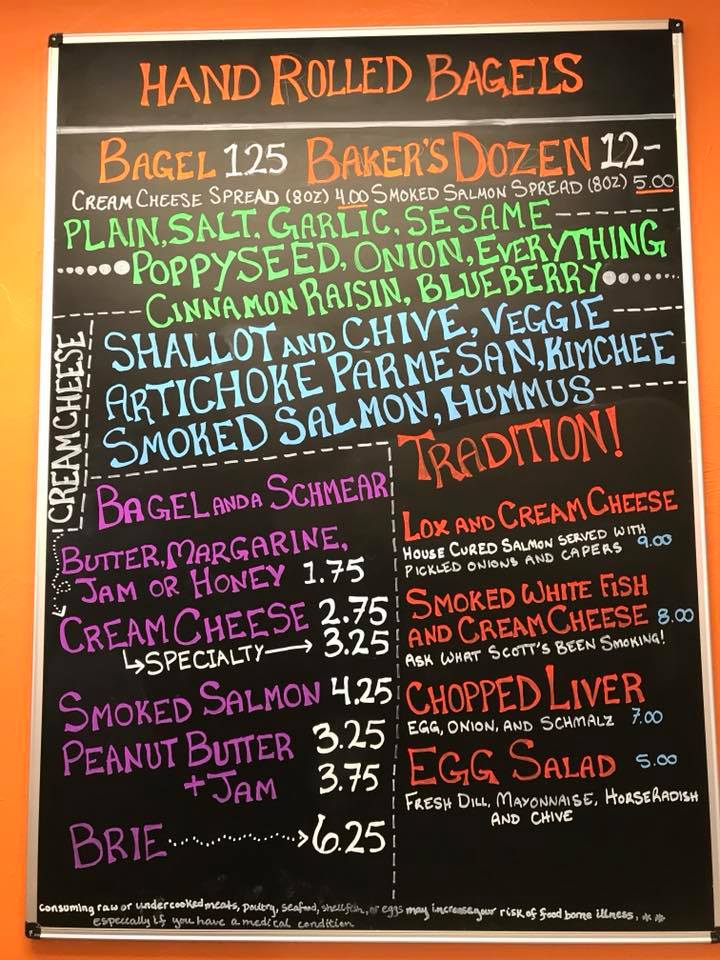 HAND ROLLED BAGELS
BAGEL 125 BAKER'S DOZEN 12-
CREAM CHEESE SPREAD (8OZ) 4.00 SMOKED SALMON SPREAD (8OZ) 5.00
PLAIN, SALT, GARLIC, SESAME
POPPYSEED, ONION, EVERYTHING
CINNAMON RAISIN, BLUEBERRY
CREAM CHEESE
SHALLOT AND CHIVE, VEGGIE
ARTICHOKE PARMESAN, KIMCHEE
SMOKED SALMON, HUMMUS
BAGEL AND A SCHMEAR
BUTTER, MARGARINE,
JAM OR HONEY 1.75
CREAM CHEESE 2.75
SPECIALTY 3.25
SMOKED SALMON 4.25
PEANUT BUTTER 3.25
+ JAM 3.75
BRIE 6.25
TRADITION!
LOX AND CREAM CHEESE
HOUSE CURED SALMON SERVED WITH
PICKLED ONIONS AND CAPERS 9.00
SMOKED WHITE FISH
AND CREAM CHEESE 8.00
ASK WHAT SCOTT'S BEEN SMOKING!
CHOPPED LIVER
EGG, ONION, AND SCHMALZ 7.00
EGG SALAD 5.00
FRESH DILL, MAYONNAISE, HORSERADISH
AND CHIVE
consuming raw or undercooked meats, poultry, seafood, shellfish, or eggs may increase your risk of food borne illness, **
especially if you have a medical condition